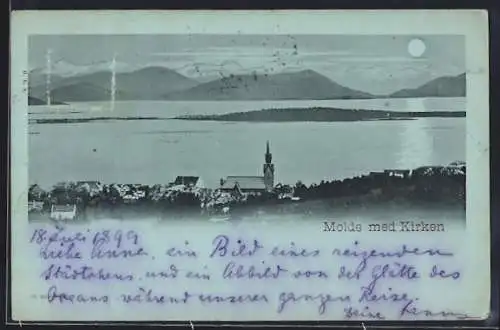 Molde med Kirken
18 Juli 1899
Liebe Anna, ein Bild eines reizenden
Städtchens und ein Abbild von der Glätte des
Oceans während unserer ganzen Reise.
Deine